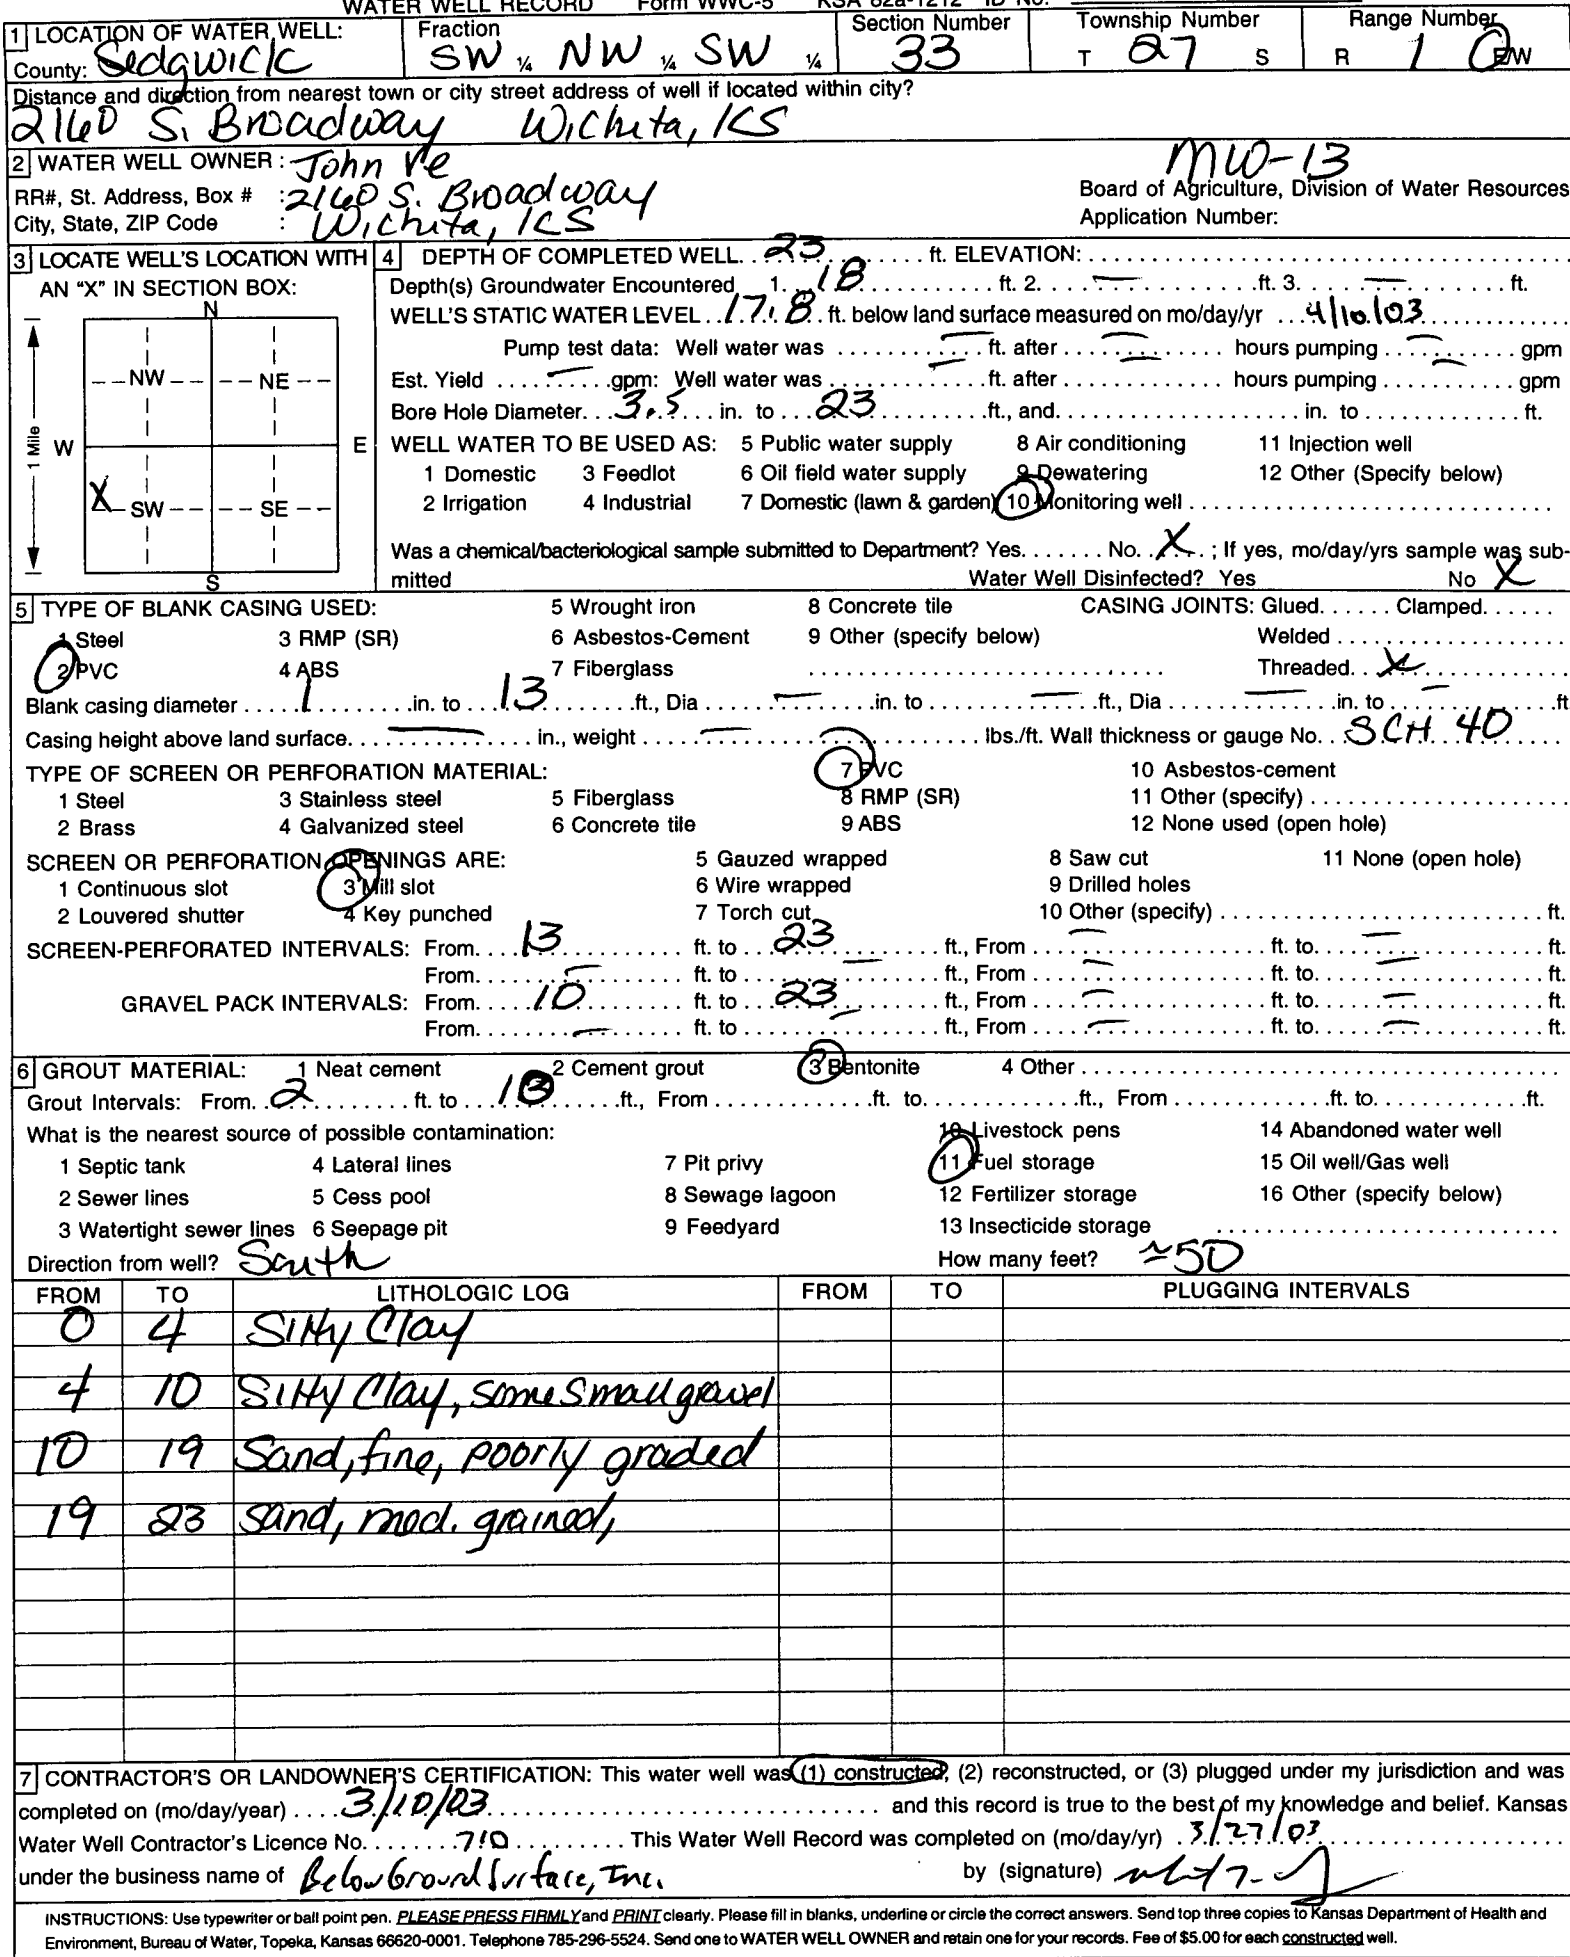 WATER WELL RECORD Form WWC-5 KSA 82a-1212 ID No.
1 LOCATION OF WATER WELL: Fraction Section Number Township Number Range Number
County: Sedgwick SW ¼ NW ¼ SW ¼ 33 T 27 S R 1 E/W
Distance and direction from nearest town or city street address of well if located within city?
2160 S. Broadway Wichita, KS
2 WATER WELL OWNER: John Ve MW-13
RR#, St. Address, Box # : 2160 S. Broadway Board of Agriculture, Division of Water Resources
City, State, ZIP Code : Wichita, KS Application Number:
3 LOCATE WELL'S LOCATION WITH AN "X" IN SECTION BOX:
N
NW NE
W E
X SW SE
S
1 Mile
4 DEPTH OF COMPLETED WELL 23 ft. ELEVATION:
Depth(s) Groundwater Encountered 1. 18 ft. 2. — ft. 3. — ft.
WELL'S STATIC WATER LEVEL 17.8 ft. below land surface measured on mo/day/yr 4/10/03
Pump test data: Well water was — ft. after — hours pumping — gpm
Est. Yield — gpm: Well water was — ft. after — hours pumping — gpm
Bore Hole Diameter 3.5 in. to 23 ft., and in. to ft.
WELL WATER TO BE USED AS: 5 Public water supply 8 Air conditioning 11 Injection well
1 Domestic 3 Feedlot 6 Oil field water supply 9 Dewatering 12 Other (Specify below)
2 Irrigation 4 Industrial 7 Domestic (lawn & garden) 10 Monitoring well
Was a chemical/bacteriological sample submitted to Department? Yes No X ; If yes, mo/day/yrs sample was sub-
mitted Water Well Disinfected? Yes No X
5 TYPE OF BLANK CASING USED: 5 Wrought iron 8 Concrete tile CASING JOINTS: Glued Clamped
1 Steel 3 RMP (SR) 6 Asbestos-Cement 9 Other (specify below) Welded
2 PVC 4 ABS 7 Fiberglass Threaded X
Blank casing diameter 1 in. to 13 ft., Dia — in. to — ft., Dia — in. to — ft
Casing height above land surface — in., weight — lbs./ft. Wall thickness or gauge No. SCH 40
TYPE OF SCREEN OR PERFORATION MATERIAL: 7 PVC 10 Asbestos-cement
1 Steel 3 Stainless steel 5 Fiberglass 8 RMP (SR) 11 Other (specify)
2 Brass 4 Galvanized steel 6 Concrete tile 9 ABS 12 None used (open hole)
SCREEN OR PERFORATION OPENINGS ARE: 5 Gauzed wrapped 8 Saw cut 11 None (open hole)
1 Continuous slot 3 Mill slot 6 Wire wrapped 9 Drilled holes
2 Louvered shutter 4 Key punched 7 Torch cut 10 Other (specify) ft.
SCREEN-PERFORATED INTERVALS: From 13 ft. to 23 ft., From — ft. to — ft.
From — ft. to — ft., From — ft. to — ft.
GRAVEL PACK INTERVALS: From 10 ft. to 23 ft., From — ft. to — ft.
From — ft. to — ft., From — ft. to — ft.
6 GROUT MATERIAL: 1 Neat cement 2 Cement grout 3 Bentonite 4 Other
Grout Intervals: From 2 ft. to 10 ft., From ft. to ft., From ft. to ft.
What is the nearest source of possible contamination: 10 Livestock pens 14 Abandoned water well
1 Septic tank 4 Lateral lines 7 Pit privy 11 Fuel storage 15 Oil well/Gas well
2 Sewer lines 5 Cess pool 8 Sewage lagoon 12 Fertilizer storage 16 Other (specify below)
3 Watertight sewer lines 6 Seepage pit 9 Feedyard 13 Insecticide storage
Direction from well? South How many feet? ≈50
FROM TO LITHOLOGIC LOG FROM TO PLUGGING INTERVALS
0 4 Silty Clay
4 10 Silty Clay, some small gravel
10 19 Sand, fine, poorly graded
19 23 Sand, med. grained,
7 CONTRACTOR'S OR LANDOWNER'S CERTIFICATION: This water well was (1) constructed, (2) reconstructed, or (3) plugged under my jurisdiction and was
completed on (mo/day/year) 3/10/03 and this record is true to the best of my knowledge and belief. Kansas
Water Well Contractor's Licence No. 710 This Water Well Record was completed on (mo/day/yr) 3/27/03
under the business name of Below Ground Surface, Inc. by (signature)
INSTRUCTIONS: Use typewriter or ball point pen. PLEASE PRESS FIRMLY and PRINT clearly. Please fill in blanks, underline or circle the correct answers. Send top three copies to Kansas Department of Health and
Environment, Bureau of Water, Topeka, Kansas 66620-0001. Telephone 785-296-5524. Send one to WATER WELL OWNER and retain one for your records. Fee of $5.00 for each constructed well.